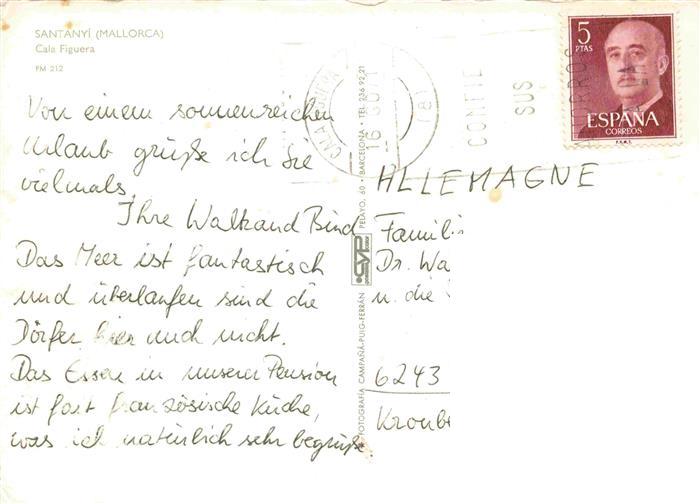 SANTANYÍ (MALLORCA)
Cala Figuera
PM 212
Von einem sonnenreichen
Urlaub grüße ich Sie
vielmals.
Ihre Waltraud Bind
Das Meer ist fantastisch
und überlaufen sind die
Dörfer hier auch nicht.
Das Essen in unserer Pension
ist fast französische Küche,
was ich natürlich sehr begrüße.
FOTOGRAFÍA CAMPAÑÁ-PUIG-FERRÁN
PELAYO, 60 • BARCELONA • TEL. 236 92 21
CYP
CALA FIGUERA
16
(81)
CONFIE
SUS
AHORROS
5
PTAS
ESPAÑA
CORREOS
ALLEMAGNE
Famili
Dr. Wa
u. die
6243
Kronb